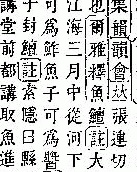 集韻韻會𠀤張連切
也爾雅釋魚鱣註大
江海三月中從河下
可爲鮓魚子可爲醬
子封鱣註索隱曰
講堂前都講取魚進